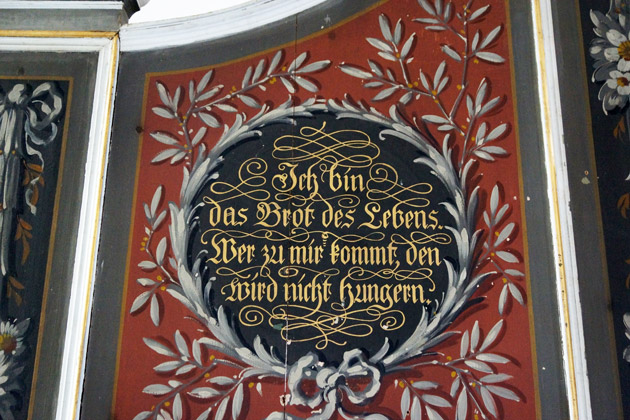 Ich bin
das Brot des Lebens.
Wer zu mir kommt, den
wird nicht hungern.